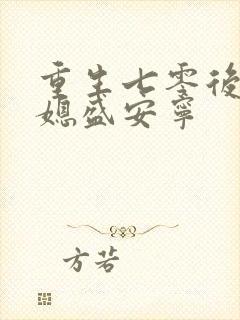 重生七零後
媳盛安寧
方若